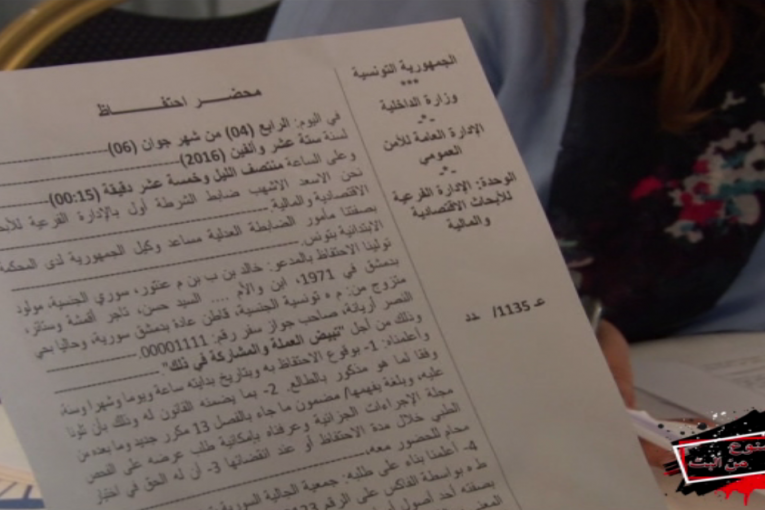 الجمهورية التونسية
***
وزارة الداخلية
-*-
الإدارة العامة للأمن
العمومي
-*-
الوحدة: الإدارة الفرعية
للأبحاث الاقتصادية
والمالية
عـ 1135/ ـدد
محضــــر احتفــــــاظ
في اليوم: الرابع (04) من شهر جوان (06)
لسنة ستة عشر وألفين (2016)
وعلى الساعة منتصف الليل وخمسة عشر دقيقة (00:15)
نحن الاسعد الاشهب ضابط الشرطة أول بالإدارة الفرعية
الاقتصادية والمالية.
بصفتنا مأمور الضابطة العدلية مساعد وكيل الجمهورية لدى المحكمة
الابتدائية بتونس.
تولينا الاحتفاظ بالمدعو: خالد بن ب بن م عنتور، سوري الجنسية، مولود
بدمشق في 1971، ابن والأم .... السيد حسن، تاجر أقمشة وستائر،
متزوج من: م ه تونسية الجنسية، قاطن عادة بدمشق سورية، وحاليا بحي
النصر أريانة، صاحب جواز سفر رقم: 00001111.
وذلك من أجل "تبييض العملة والمشاركة في ذلك".
وأعلمناه: 1- بوقوع الاحتفاظ به وبتاريخ بدايته ساعة ويوما وشهرا وسنة
وفقا لما هو مذكور بالطالع. 2- بما يضمنه القانون له وذلك بأن تلونا
عليه، وبلغة يفهمها/ مضمون ما جاء بالفصل 13 مكرر جديد وما بعده من
مجلة الإجراءات الجزائية وعرفناه بإمكانية طلب عرضه على الفحص
الطبي خلال مدة الاحتفاظ أو عند انقضائها 3- أن له الحق في اختيار
محام للحضور معه.
4- أعلمنا بناء على طلبه: جمعية الجالية السورية
ط ه بواسطة الفاكس على الرقم
بصفته أحد أصول
من أنبت